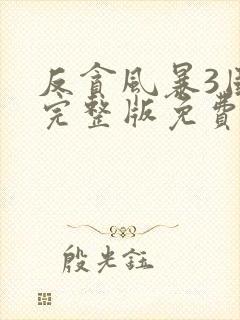 反貪風暴3
完整版免費
殷光鈺